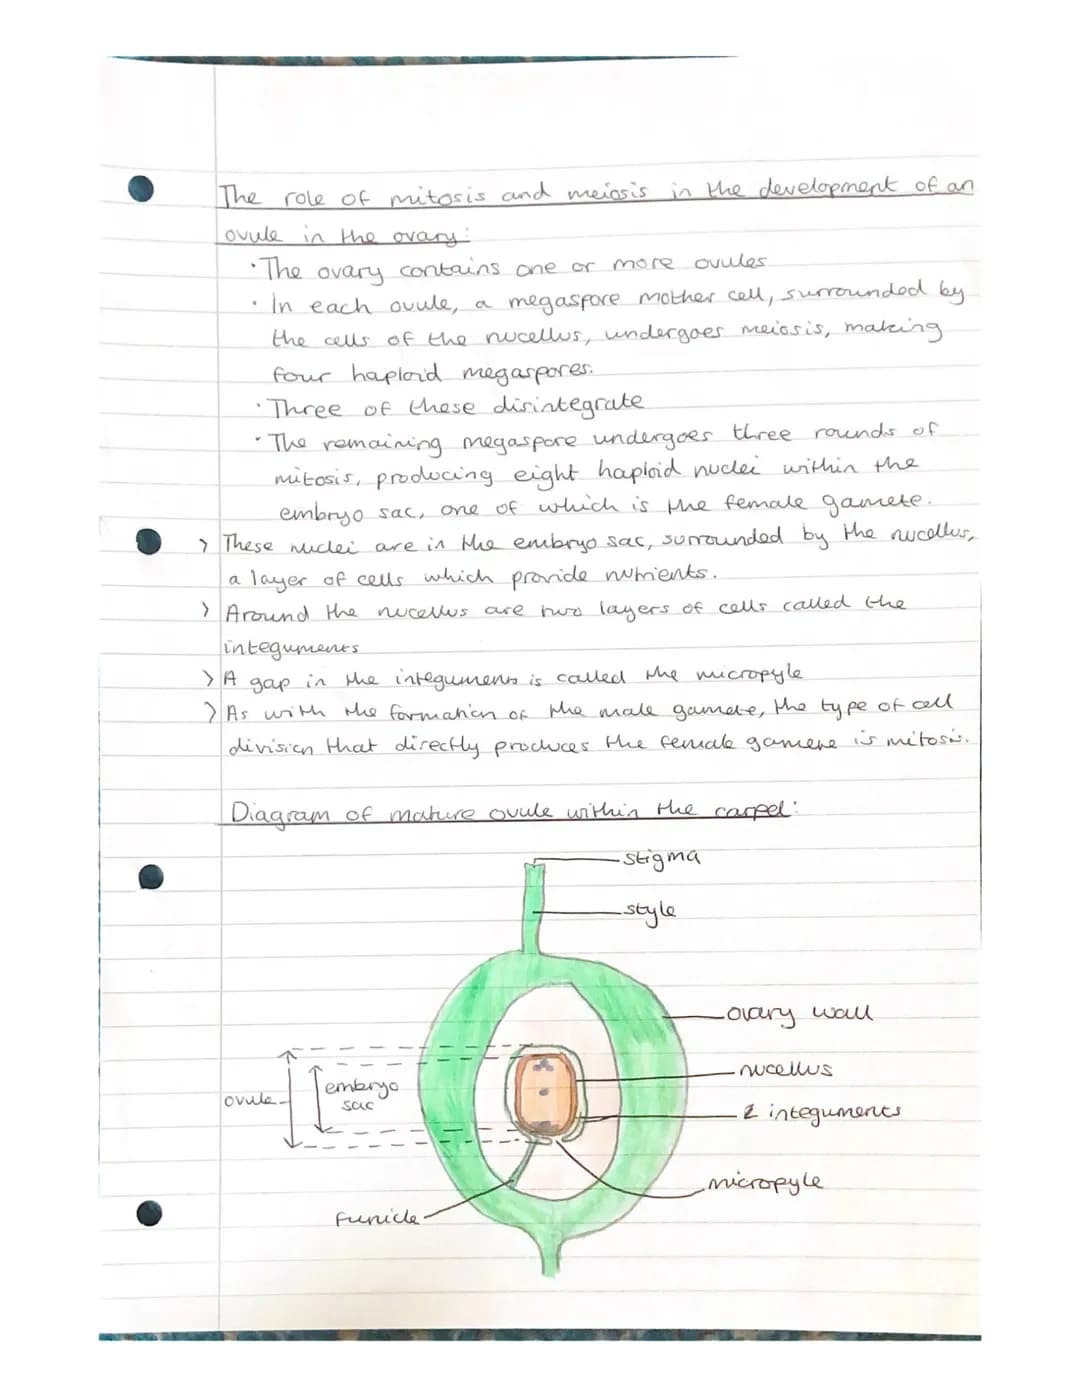 The role of mitosis and meiosis in the development of an
ovule in the ovary:
· The ovary contains one or more ovules
· In each ovule, a megaspore mother cell, surrounded by
the cells of the nucellus, undergoes meiosis, making
four haploid megaspores.
· Three of these disintegrate
· The remaining megaspore undergoes three rounds of
mitosis, producing eight haploid nuclei within the
embryo sac, one of which is the female gamete.
> These nuclei are in the embryo sac, surrounded by the nucellus,
a layer of cells which provide nutrients.
> Around the nucellus are two layers of cells called the
integuments
> A gap in the integuments is called the micropyle
> As with the formation of the male gamete, the type of cell
division that directly produces the female gamete is mitosis.
Diagram of mature ovule within the carpel:
stigma
style
ovary wall
nucellus
embryo
sac
ovule
2 integuments
micropyle
funicle